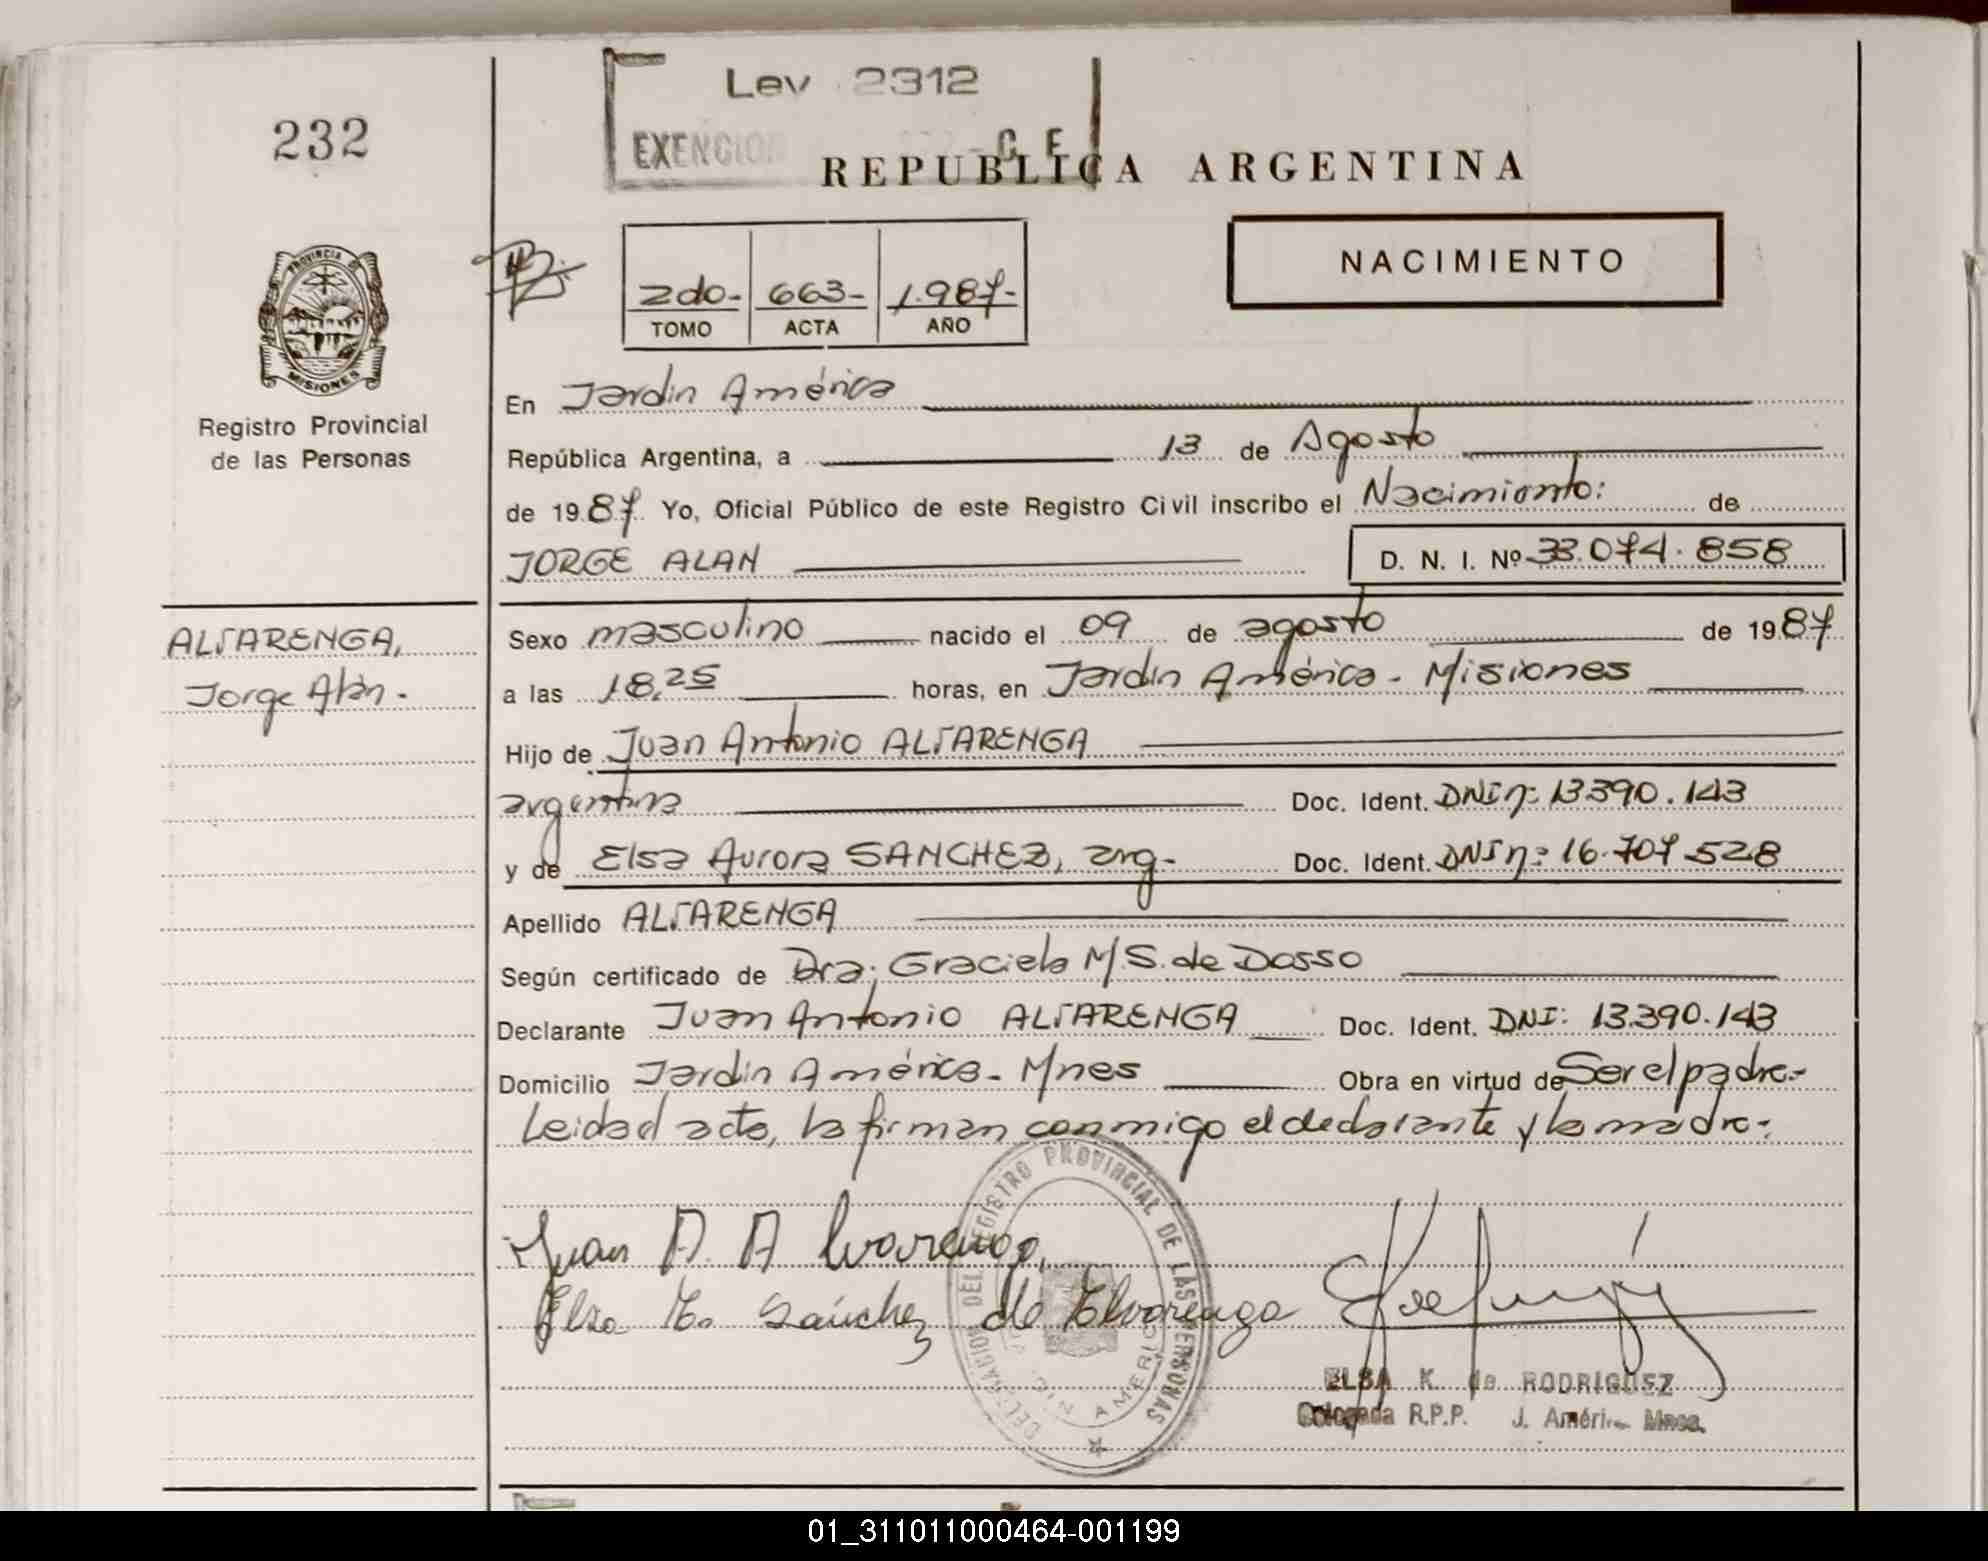 232
Ley 2312
EXENCION
C F
REPUBLICA ARGENTINA
PROVINCIA DE
MISIONES
Registro Provincial
de las Personas
2do- 663- 1.987-
TOMO ACTA AÑO
NACIMIENTO
En Jardin América
República Argentina, a 13 de Agosto
de 1987 Yo, Oficial Público de este Registro Civil inscribo el Nacimiento: de
JORGE ALAN D. N. I. Nº 33.074.858
ALVARENGA,
Jorge Alan.-
Sexo masculino nacido el 09 de agosto de 1987
a las 18,25 horas, en Jardin América - Misiones
Hijo de Juan Antonio ALVARENGA
argentina Doc. Ident. DNI nº: 13.390.143
y de Elsa Aurora SANCHEZ, arg.- Doc. Ident. DNI nº: 16.707.528
Apellido ALVARENGA
Según certificado de Dra; Graciela M.S. de Dosso
Declarante Juan Antonio ALVARENGA Doc. Ident. DNI: 13.390.143
Domicilio Jardin América - Mnes Obra en virtud de Ser el padre.-
Leida el acta, la firman conmigo el declarante y la madre.-
Juan A. Alvarenga
Elsa Sánchez de Alvarenga
DEL REGISTRO PROVINCIAL DE LAS PERSONAS
ELSA K. de RODRIGUEZ
Delegada R.P.P. J. Améri. Mnes.
01_311011000464-001199